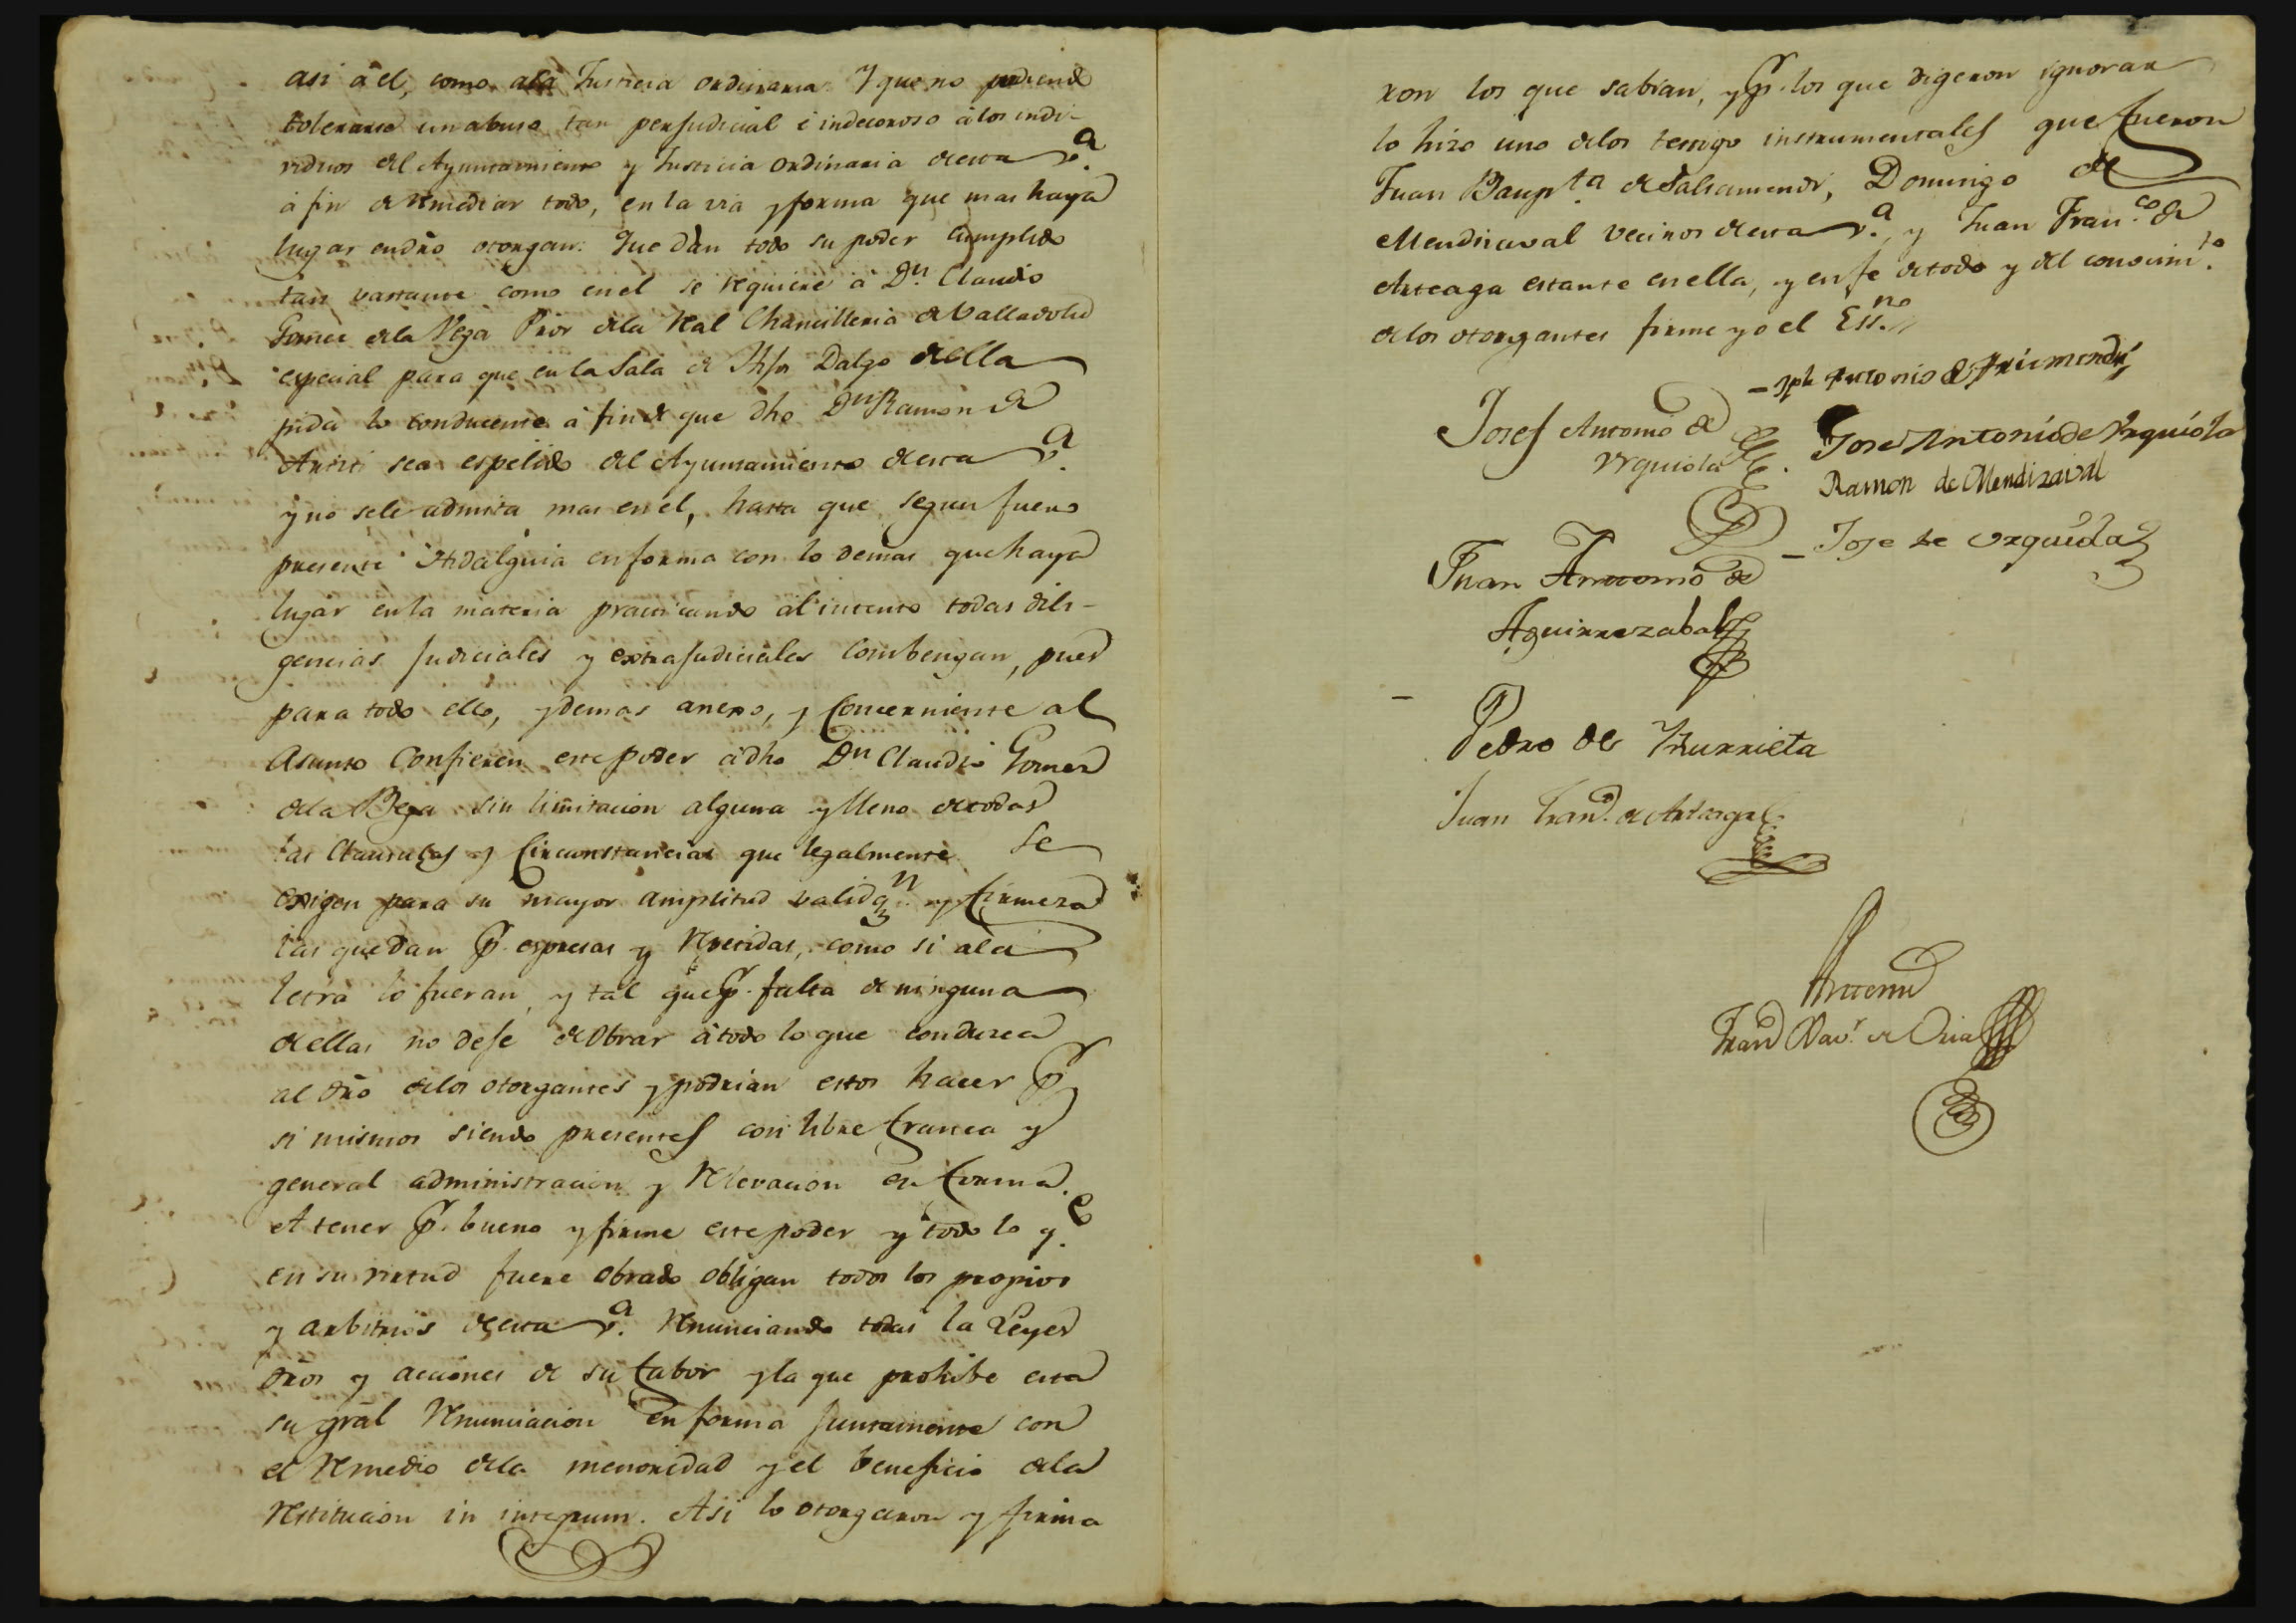 asi â el, como ala Justicia ordinaria. Y que no pudiendo
tolerarse un abuso tan perjudicial é indecoroso â los indi-
viduos del Ayuntamiento y Justicia ordinaria de esta v.ª
â fin de remediar todo, en la via y forma que mas haya
lugar en dro otorgan: Que dàn todo su poder cumplido
tan vastante como en el se requiere â Dn. Claudio
Gomez dela Vega Pror dela Real Chancilleria de Valladolid
especial para que en la Sala de Hijos Dalgo de ella
pida lo conducente â fin de que dho Dn Ramon de
sea espelido del Ayuntamiento de esta v.ª
y no sele admita mas en el, hasta que segun fuero
presente Hidalguia en forma con lo demas que haya
lugar en la materia practicando al intento todas dili-
gencias Judiciales y extrajudiciales combengan, pues
para todo ello, y demas anexo, y Concerniente al
Asunto Confieren este poder â dho Dn Claudio Gomez
dela Bega sin limitacion alguna y lleno de todas
las Clausulas y Circunstancias que legalmente se
exigen para su mayor amplitud validqn. y firmeza
las que dan p. espresas y repetidas, como si ala
letra lo fueran, y tal que p. falta de ninguna
de ellas no deje de Obrar â todo lo que conduzca
al dro delos otorgantes y podrian estos hacer p.
si mismos siendo presentes con libre franca y
general administracion y relevacion en forma.
A tener p. bueno y firme este poder y todo lo q.e
en su virtud fuere obrado obligan todos los propios
y arbitrios de esta v.ª renunciando todas la Leyes
dros y acciones de su fabor y la que prohibe esta
su gral renunciacion en forma juntamente con
el remedio dela menoridad y el beneficio dela
restitucion in integrum. Asi lo otorgaron y firma
ron los que sabian, y p. los que digeron ignorar
lo hizo uno delos testigo instrumentales que fueron
Juan Baupta. de Salsamendi, Domingo de
Mendizaval vecinos de esta v.ª, y Juan Fran.co de
Arteaga estante en ella, y en fe de todo y del conocim.to
delos otorgantes firme yo el Ess.no
Jph Antonio de
Josef Antonio de
Urquiola
Jose Antonio de Urquiola
Ramon de Mendizaval
Jose de Urquiola
Juan Antonio de
Aguirrezabal
Pedro de Iturrieta
Juan Fran.co de Arteaga
Antemi
Fran.co Xav.r de Oria